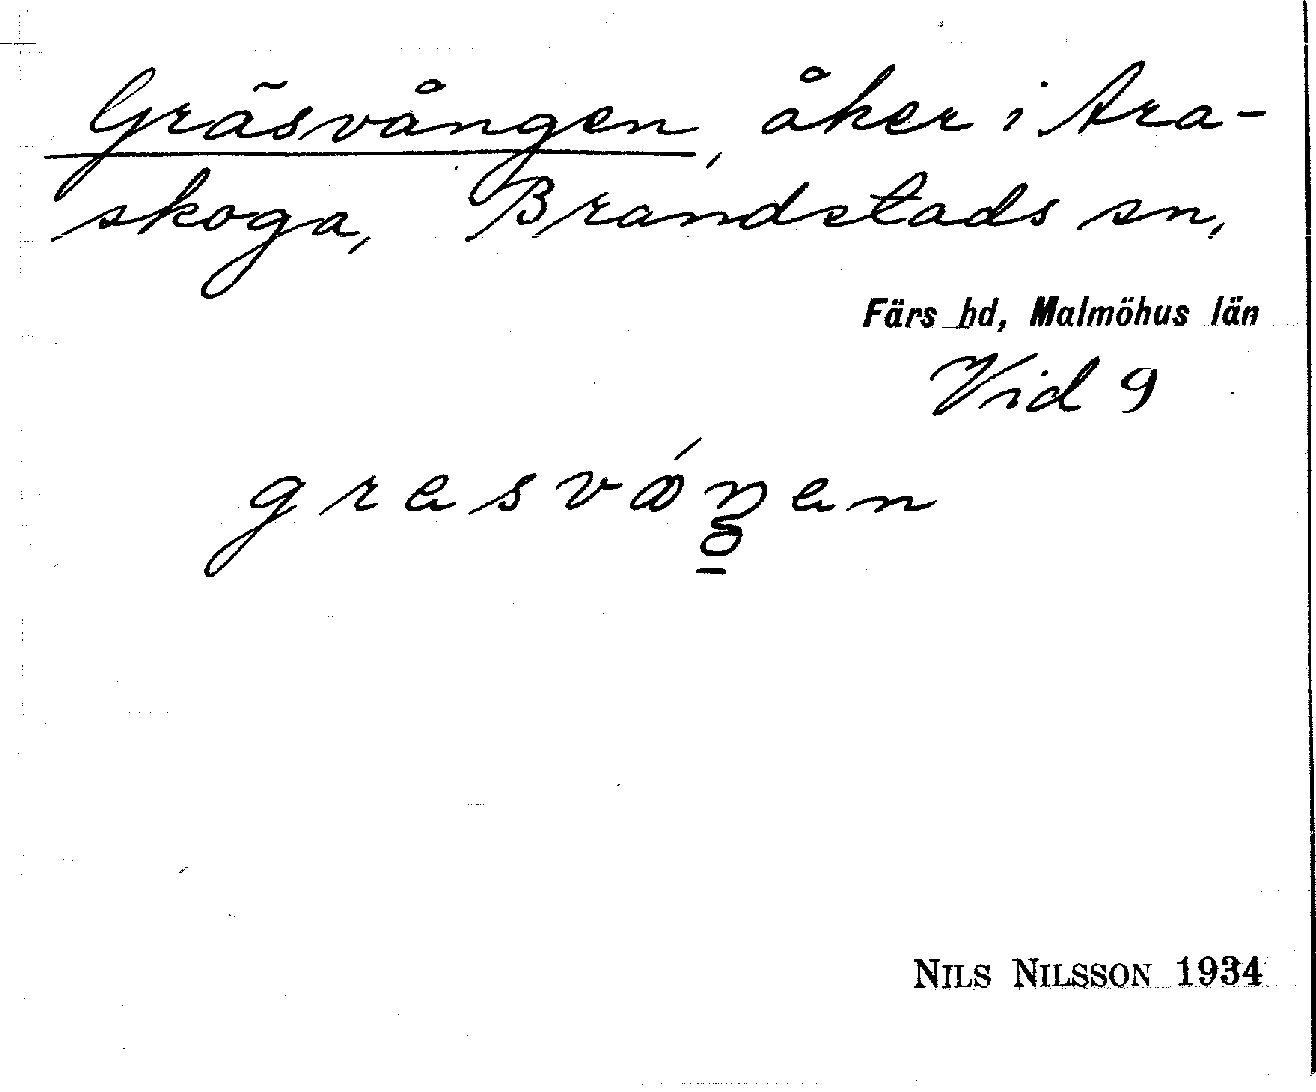 Gräsvången, åker i Ara-
skoga, Brandstads sn,
Färs hd, Malmöhus län
Vid 9
NILS NILSSON 1934